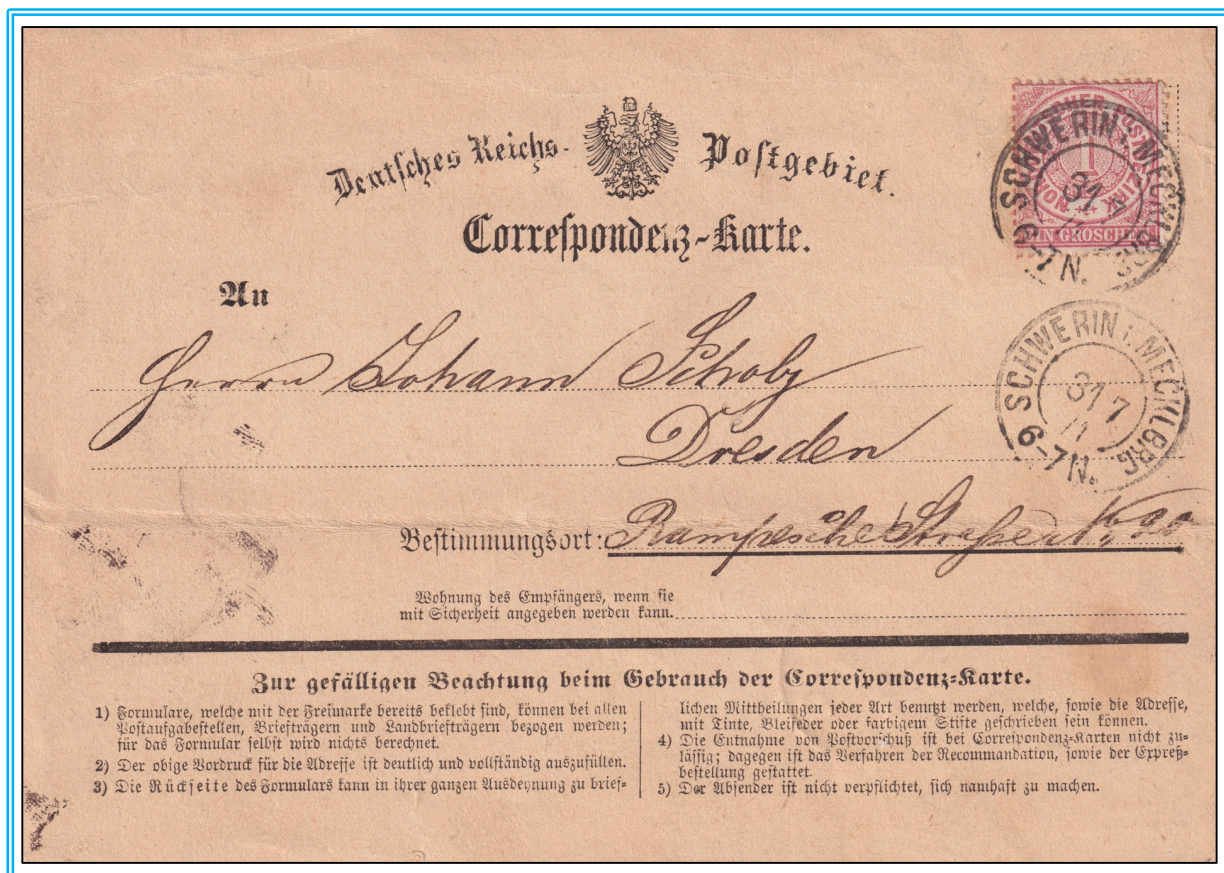 Deutsches Reichs-Postgebiet.
Correspondenz-Karte.
NORDDEUTSCHER POSTBEZIRK
EIN GROSCHEN
1
SCHWERIN i. MECKLBRG
31 7
71
6-7 N.
An
Herrn Johann
Dresden
SCHWERIN i. MECKLBRG
31 7
71
6-7 N.
Bestimmungsort: Strasse No
Wohnung des Empfängers, wenn sie
mit Sicherheit angegeben werden kann.
Zur gefälligen Beachtung beim Gebrauch der Correspondenz-Karte.
1) Formulare, welche mit der Freimarke bereits beklebt sind, können bei allen
Postaufgabestellen, Briefträgern und Landbriefträgern bezogen werden;
für das Formular selbst wird nichts berechnet.
2) Der obige Vordruck für die Adresse ist deutlich und vollständig auszufüllen.
3) Die Rückseite des Formulars kann in ihrer ganzen Ausdeynung zu brief-
lichen Mittheilungen jeder Art benutzt werden, welche, sowie die Adresse,
mit Tinte, Bleifeder oder farbigem Stifte geschrieben sein können.
4) Die Entnahme von Postvorschuß ist bei Correspondenz-Karten nicht zu-
lässig; dagegen ist das Verfahren der Recommandation, sowie der Expreß-
bestellung gestattet.
5) Der Absender ist nicht verpflichtet, sich namhaft zu machen.